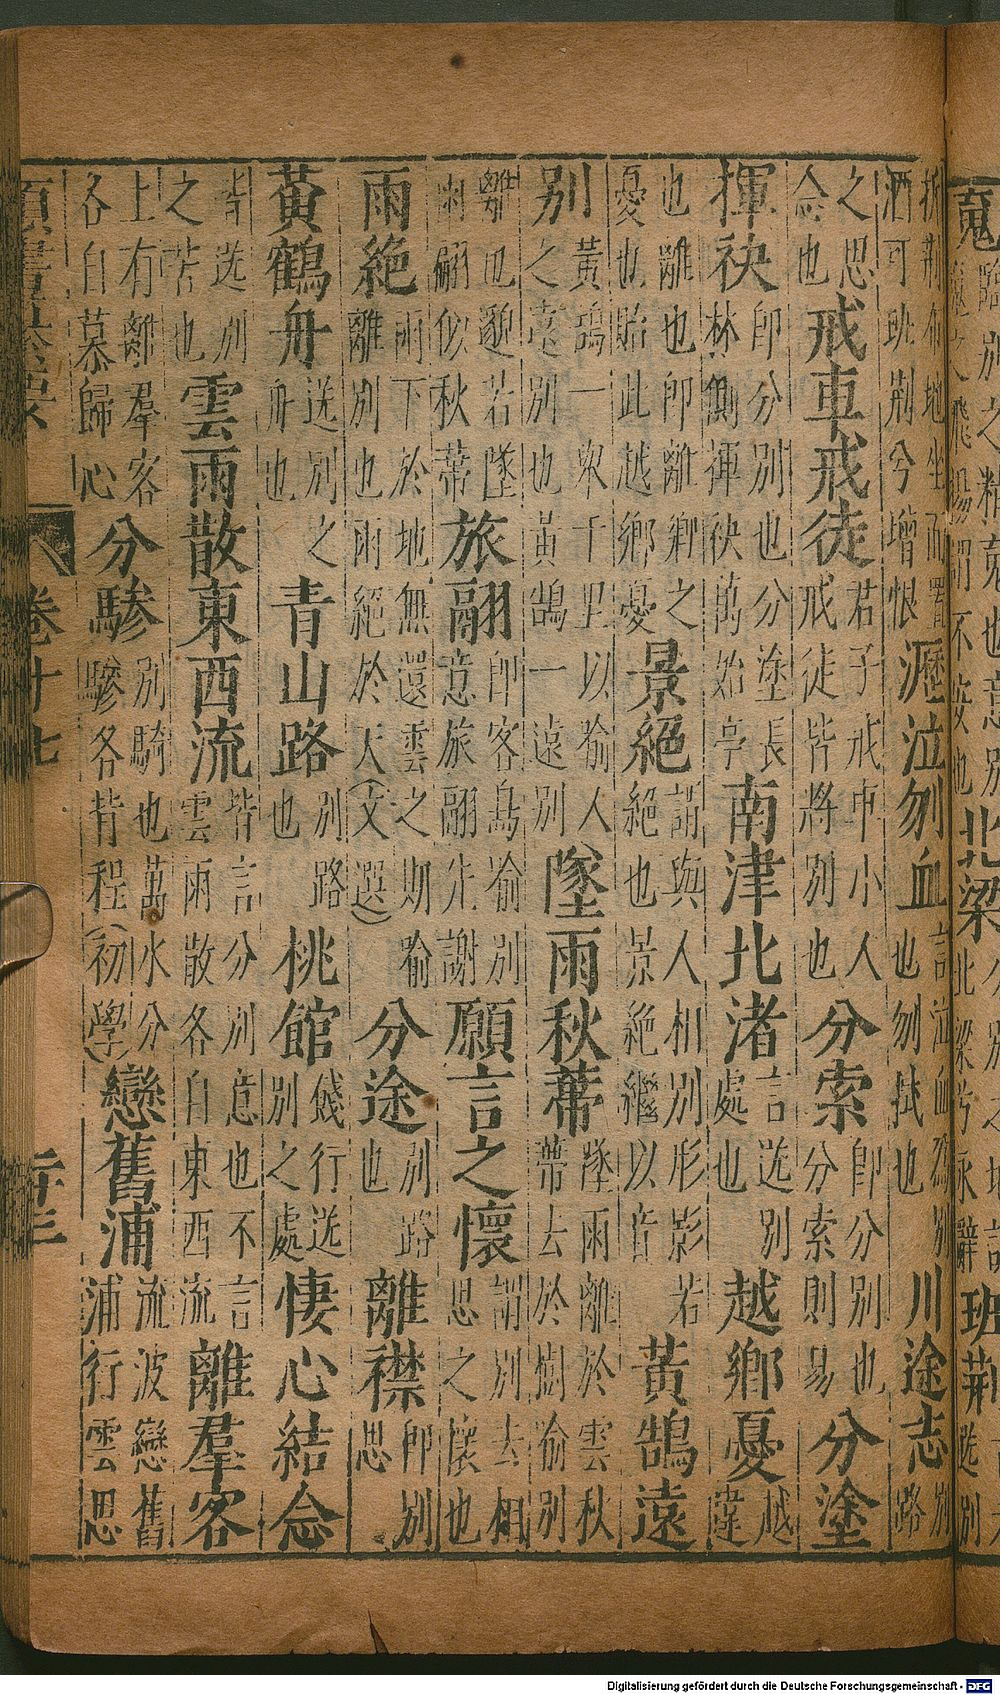 北梁
北梁兮永辭
班荊
折荆布地坐而
洒可班荆兮增恨
瀝泣刎血
言泣血為別
也刎拭也
川途志
別
路
之思
念也
戒車戒徒
君子戒車小人
戒徒皆將別也
分索
卽分別也
分索則易
分塗
揮袂
卽分別也分塗長
林側揮袂萬始亭
南津北渚
言送別
處也
越鄉憂
越
違
也離也卽離鄉之
憂也貽此越鄉憂
景絕
謂與人相別形影若
絕也景絕繼以音
黃鵠遠
別
黃鵠一舉千里以喻人
之遠別也黃鵠一遠別
墜雨秋蔕
墜雨離於雲秋
蔕去於樹喻別
離也邈若墜
雨翩似秋蔕
旅翮
卽客鳥喻別
意旅翮先謝
願言之懷
謂別去相
思之懷也
雨絕
雨下於地無還雲之期喻
離別也雨絕於天(文選)
分途
別路
也
離襟
卽別
思
黃鶴舟
送別之
舟也
青山路
別路
也
桃館
餞行送
別之處
悽心結念
皆送別
之苦也
雲雨散東西流
皆言分別意也不言
雲雨散各自東西流
離羣客
上有離羣客
各自慕歸心
分驂
別騎也萬水分
驂各背程(初學)
戀舊浦
流波戀舊
浦行雲思
卷廿七
Digitalisierung gefördert durch die Deutsche Forschungsgemeinschaft - DFG